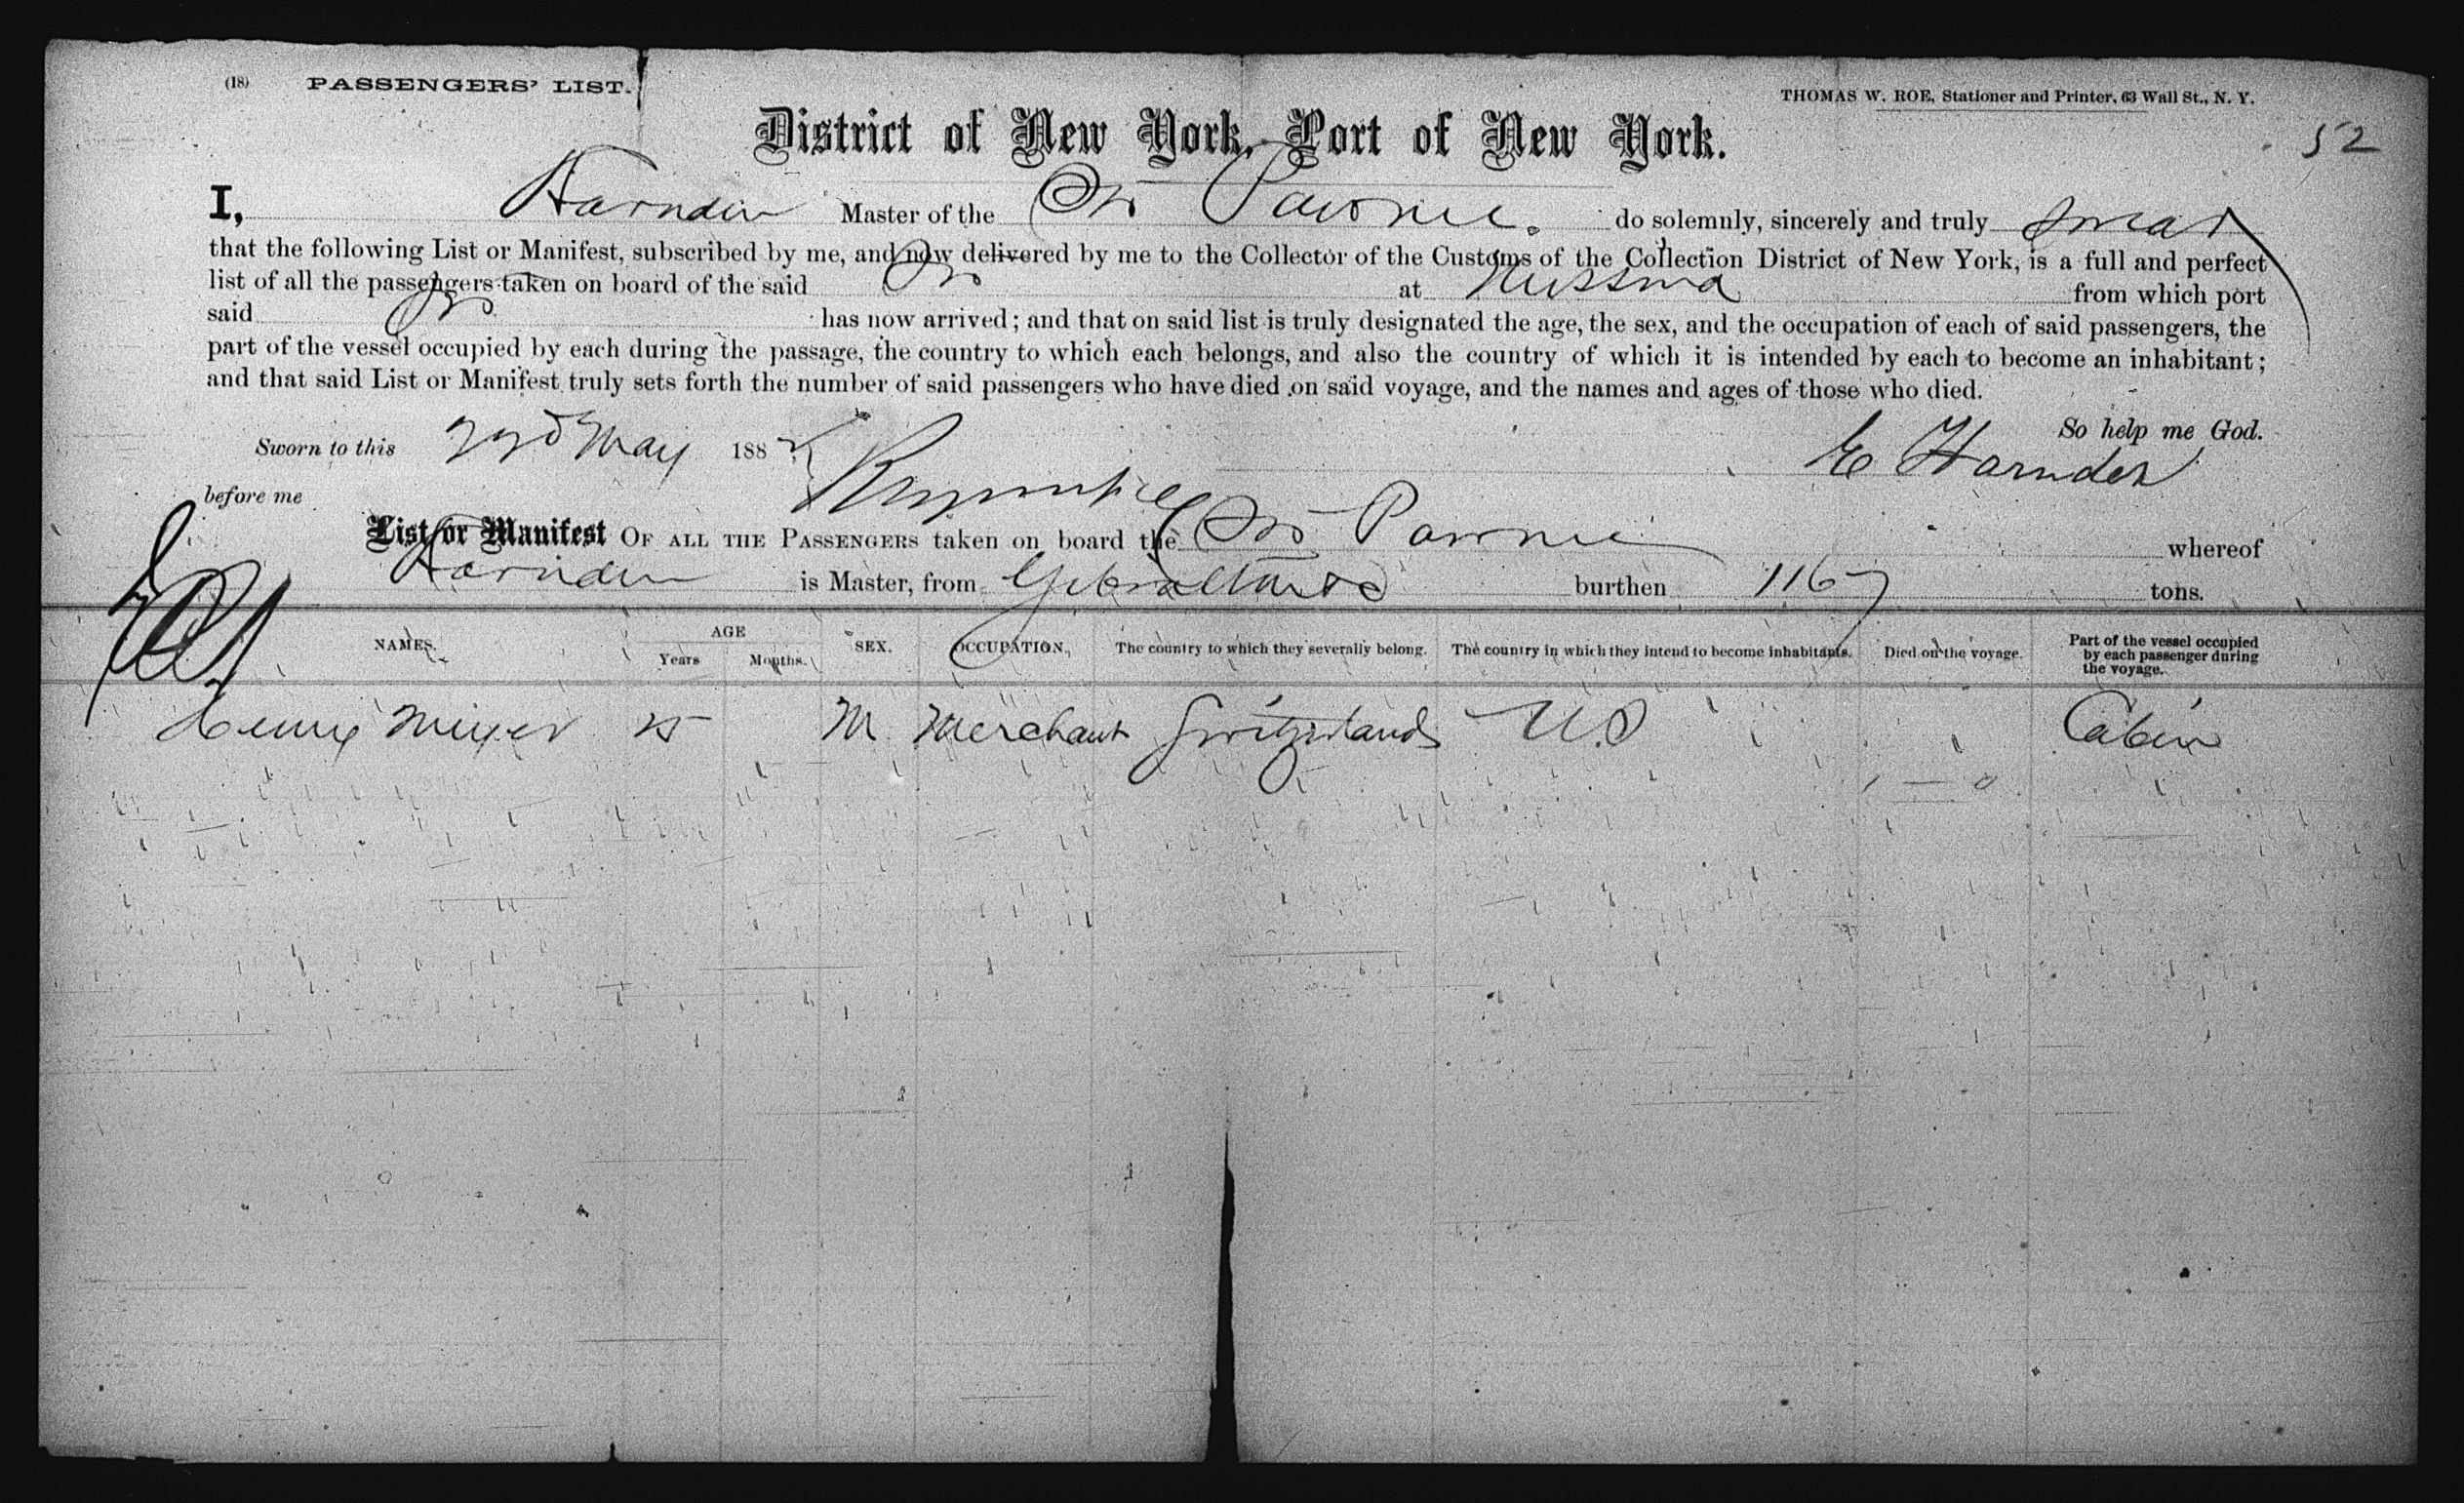 (18) PASSENGERS' LIST.
THOMAS W. ROE, Stationer and Printer, 63 Wall St., N. Y.
52
District of New York, Port of New York.
I, Harnden Master of the Str Pawnee. do solemnly, sincerely and truly swear
that the following List or Manifest, subscribed by me, and now delivered by me to the Collector of the Customs of the Collection District of New York, is a full and perfect
list of all the passengers taken on board of the said Str at Messina from which port
said Str has now arrived; and that on said list is truly designated the age, the sex, and the occupation of each of said passengers, the
part of the vessel occupied by each during the passage, the country to which each belongs, and also the country of which it is intended by each to become an inhabitant;
and that said List or Manifest truly sets forth the number of said passengers who have died on said voyage, and the names and ages of those who died.
So help me God.
Sworn to this 22d May 188
E Harnden
before me
List or Manifest OF ALL THE PASSENGERS taken on board the Str Pawnee whereof
Harnden is Master, from burthen 1167 tons.
NAMES. AGE Years Months. SEX. OCCUPATION. The country to which they severally belong. The country in which they intend to become inhabitants. Died on the voyage. Part of the vessel occupied by each passenger during the voyage.
Henry Meyer 25 M Merchant Switzerland U.S Cabin